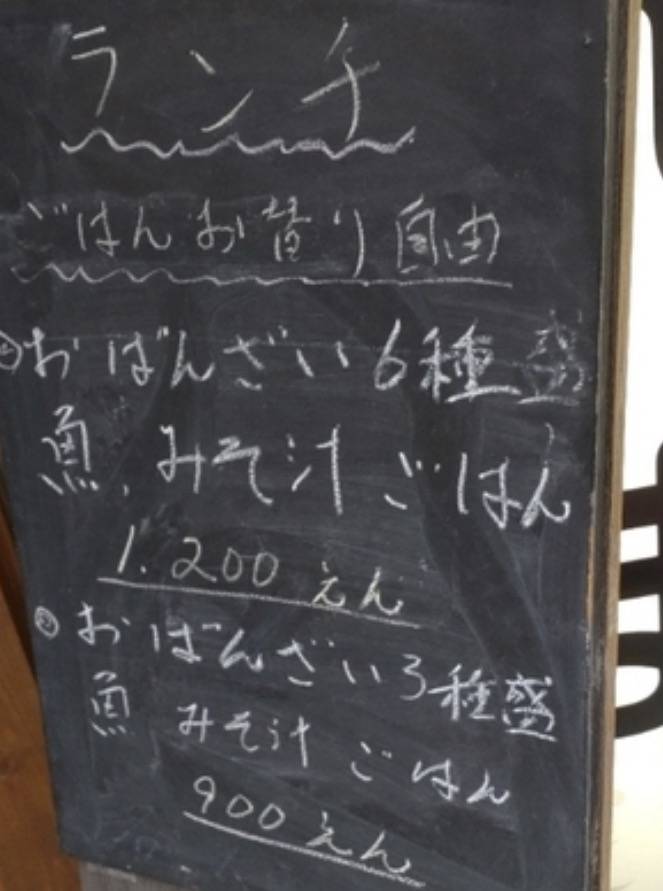 ランチ
ごはんお替り自由
◎おばんざい6種盛
魚、みそ汁ごはん
1.200えん
◎おばんざい3種盛
魚 みそ汁 ごはん
900えん